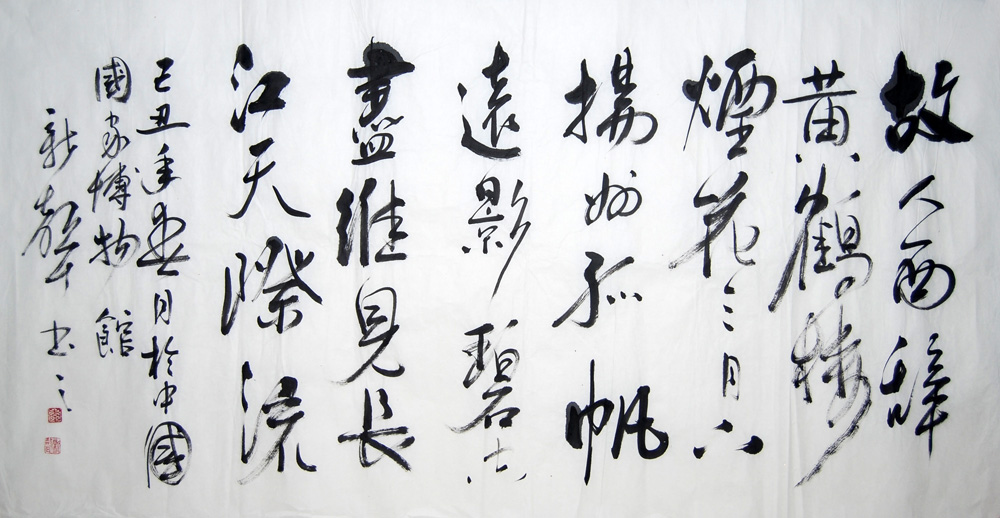 故人西辞
黄鶴楼
煙花三月下
揚州孤帆
遠影碧空
盡維見長
江天際流
己丑年春月於中國
國家博物館
书之